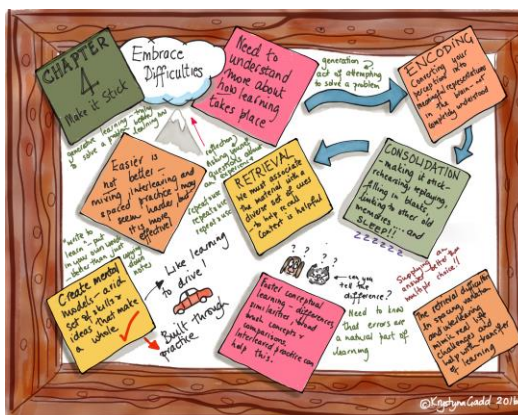 CHAPTER
4.
Make it Stick
Embrace
Difficulties
Need to
understand
more about
how learning
takes place
generation is
act of attempting
to solve a problem
ENCODING
Converting your
perception into
meaningful representations
in the brain - not
completely understood
generative learning - trying
to solve a problem before
training on
reflection
Asking yourself
questions about
and experience
repeat & use
repeat & use
repeat & use
Easier is
not better -
mixing interleaving and
spaced practice may
seem harder but
it is more
effective
RETRIEVAL
We must associate
the material with a
diverse set of cues
to help recall
Context is helpful
CONSOLIDATION
- making it stick -
rehearsing, replaying,
filling in blanks,
linking to other old
memories..... and
SLEEP!!
ZZZZZZZ
"write to
learn" - put
in your own words
better than just
copying down
notes
Create mental
models - a rich
set of skills or
ideas that make
a whole
Like learning
to drive!
Built through
practice
? ? ?
can you
tell the
difference?
Foster conceptual
learning - differences,
similarities & broad
book concepts &
comparisons.
Interleaved practice can
help this.
Need to
know that
errors are
a natural part of
learning
Supplying an
answer better than
multiple choice!!
The retrieval difficulties
in spacing, variation
and interleaving
mimic real life
challenges and
help with transfer
of learning
©Krystyna Gadd 2016